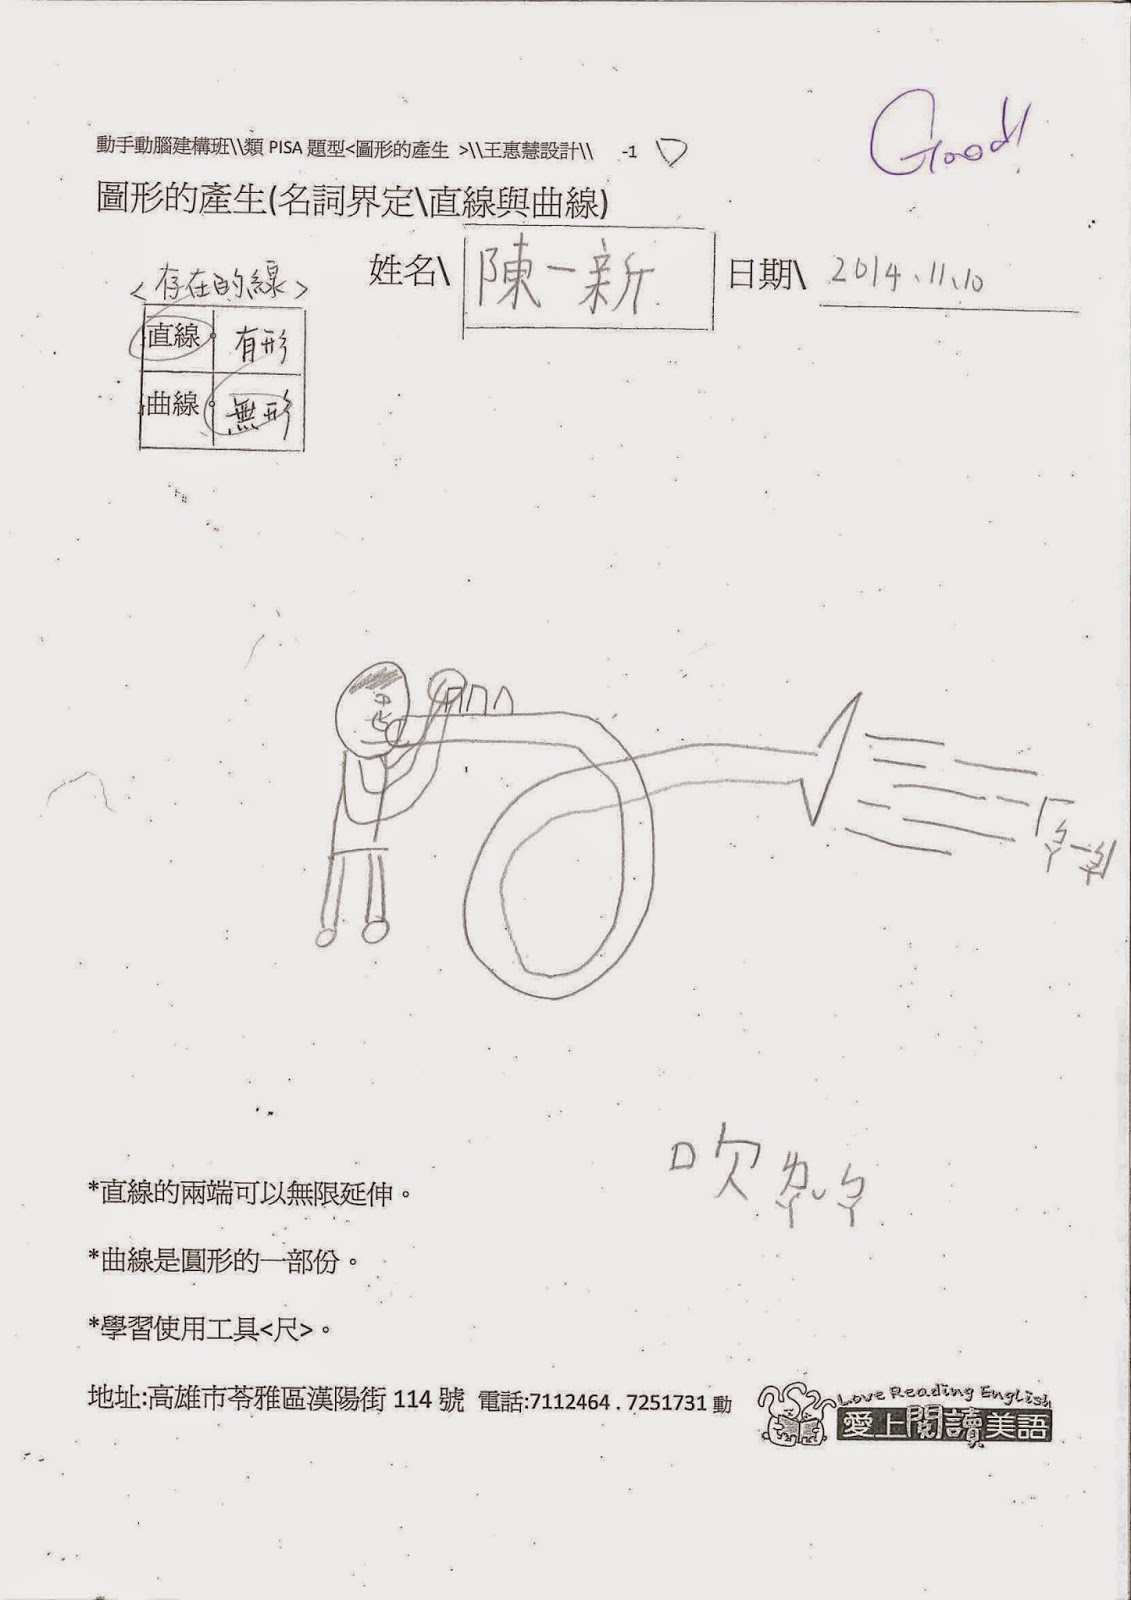 Good!
動手動腦建構班\\類 PISA 題型<圖形的產生 >\\王惠慧設計\\ -1
圖形的產生(名詞界定\直線與曲線)
姓名\ 陳一新 日期\ 2014.11.10
<存在的線>
直線 有形
曲線 無形
吹
*直線的兩端可以無限延伸。
*曲線是圓形的一部份。
*學習使用工具<尺>。
地址:高雄市苓雅區漢陽街 114 號 電話:7112464 . 7251731 動
Love Reading English
愛上閱讀美語